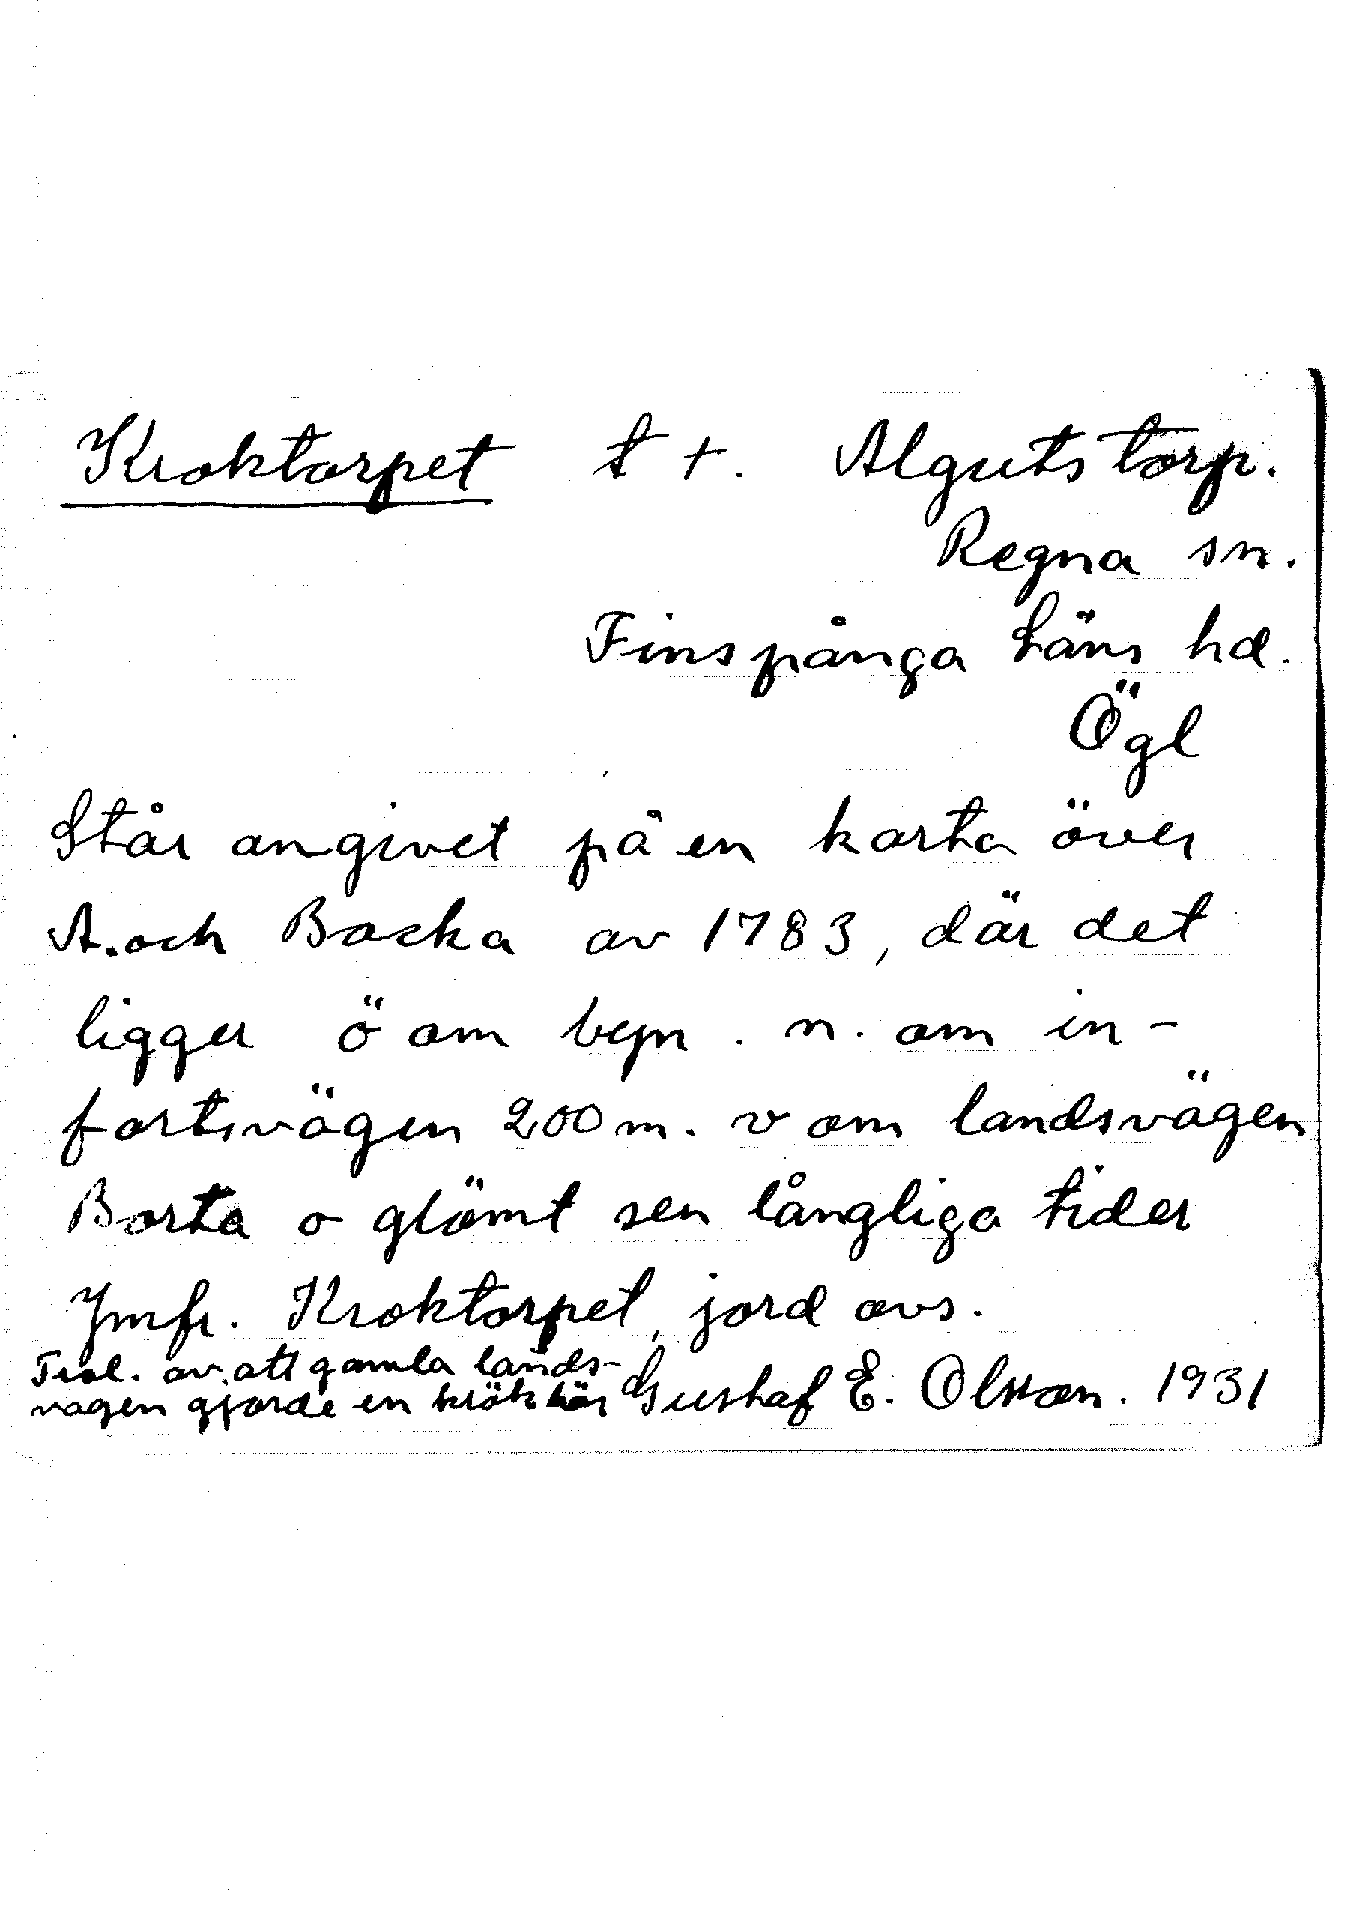 Kroktorpet t +. Algutstorp.
Regna sn.
Finspånga Läns hd.
Ögl
Står angivet på en karta över
A. och Backa av 1783, där det
ligger ö om byn. n. om in-
fartsvägen 200 m. v om landsvägen
Borta o glömt sen långliga tider
Jmfr. Kroktorpet, jord avs.
Trol. av att gamla lands-
vägen gjorde en krök här
Gustaf E. Olsson. 1931